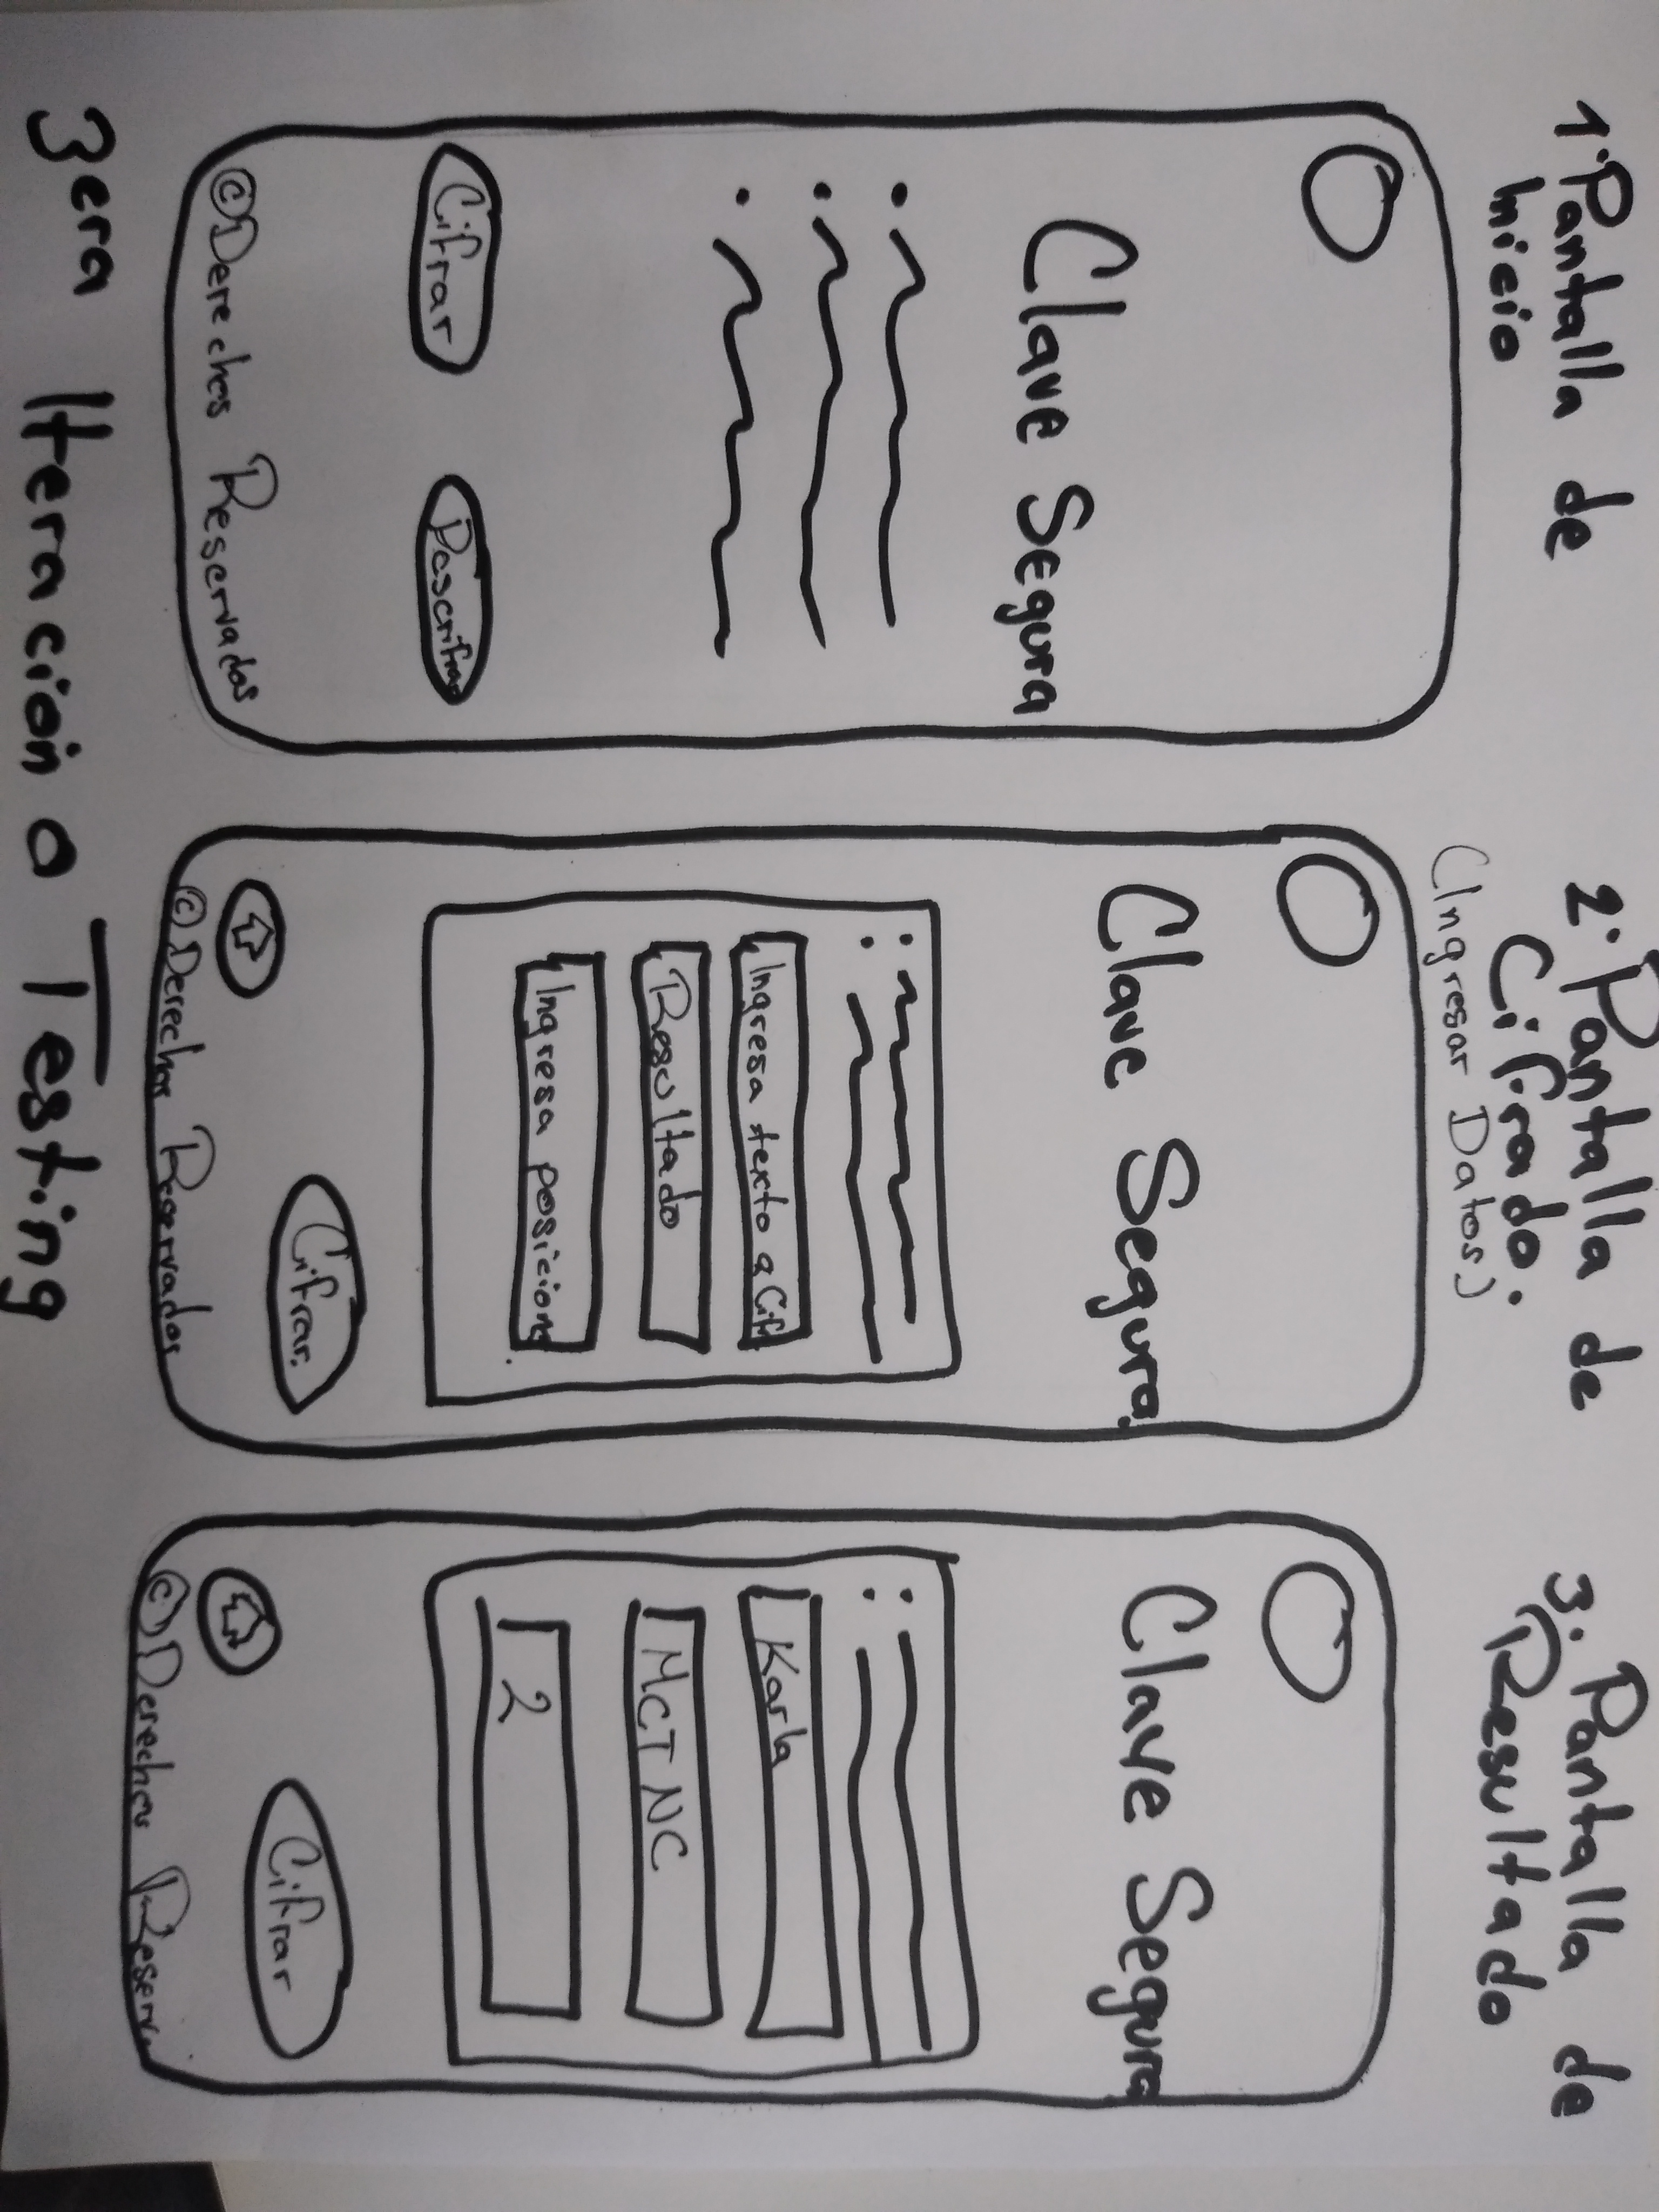 1. Pantalla de
Inicio
Clave Segura
Cifrar
Descrifrar
© Derechos Reservados
2. Pantalla de
Cifrado.
(Ingresar Datos)
Clave Segura.
Ingresa texto a Cif
Resultado
Ingresa posicione
Cifrar.
© Derechos Reservados
3. Pantalla de
Resultado
Clave Segura
Karla
MCTNC
2
Cifrar
© Derechos Reserva
3era Iteración o Testing